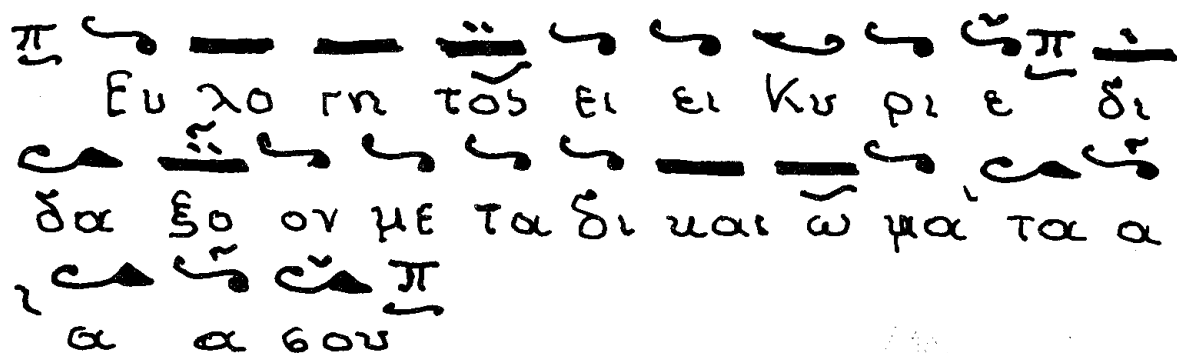 Ευ λο γη τος ει ει Κυ ρι ε δι
δα ξο ον με τα δι και ω μα τα α
α α σου